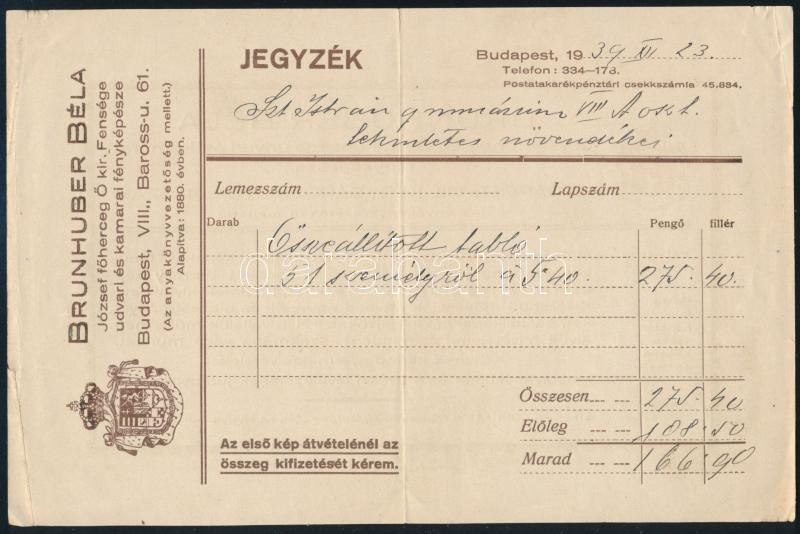 BRUNHUBER BÉLA
József főherceg Ő kir. Fensége
udvari és kamarai fényképésze
Budapest, VIII., Baross-u. 61.
(Az anyakönyvvezetőség mellett.)
Alapítva: 1880. évben.
JEGYZÉK
Budapest, 1939 XII 23.
Telefon: 334—178.
Postatakarékpénztári csekkszámla 45.884.
Szt István gymnásium VIII A oszt.
tekintetes növendékei
Lemezszám Lapszám
Darab Pengő fillér
Összeállított tabló
51 személyről á 5.40. 275. 40.
Összesen 275. 40
Előleg 108.50
Marad 166.90
Az első kép átvételénél az
összeg kifizetését kérem.
darabanth